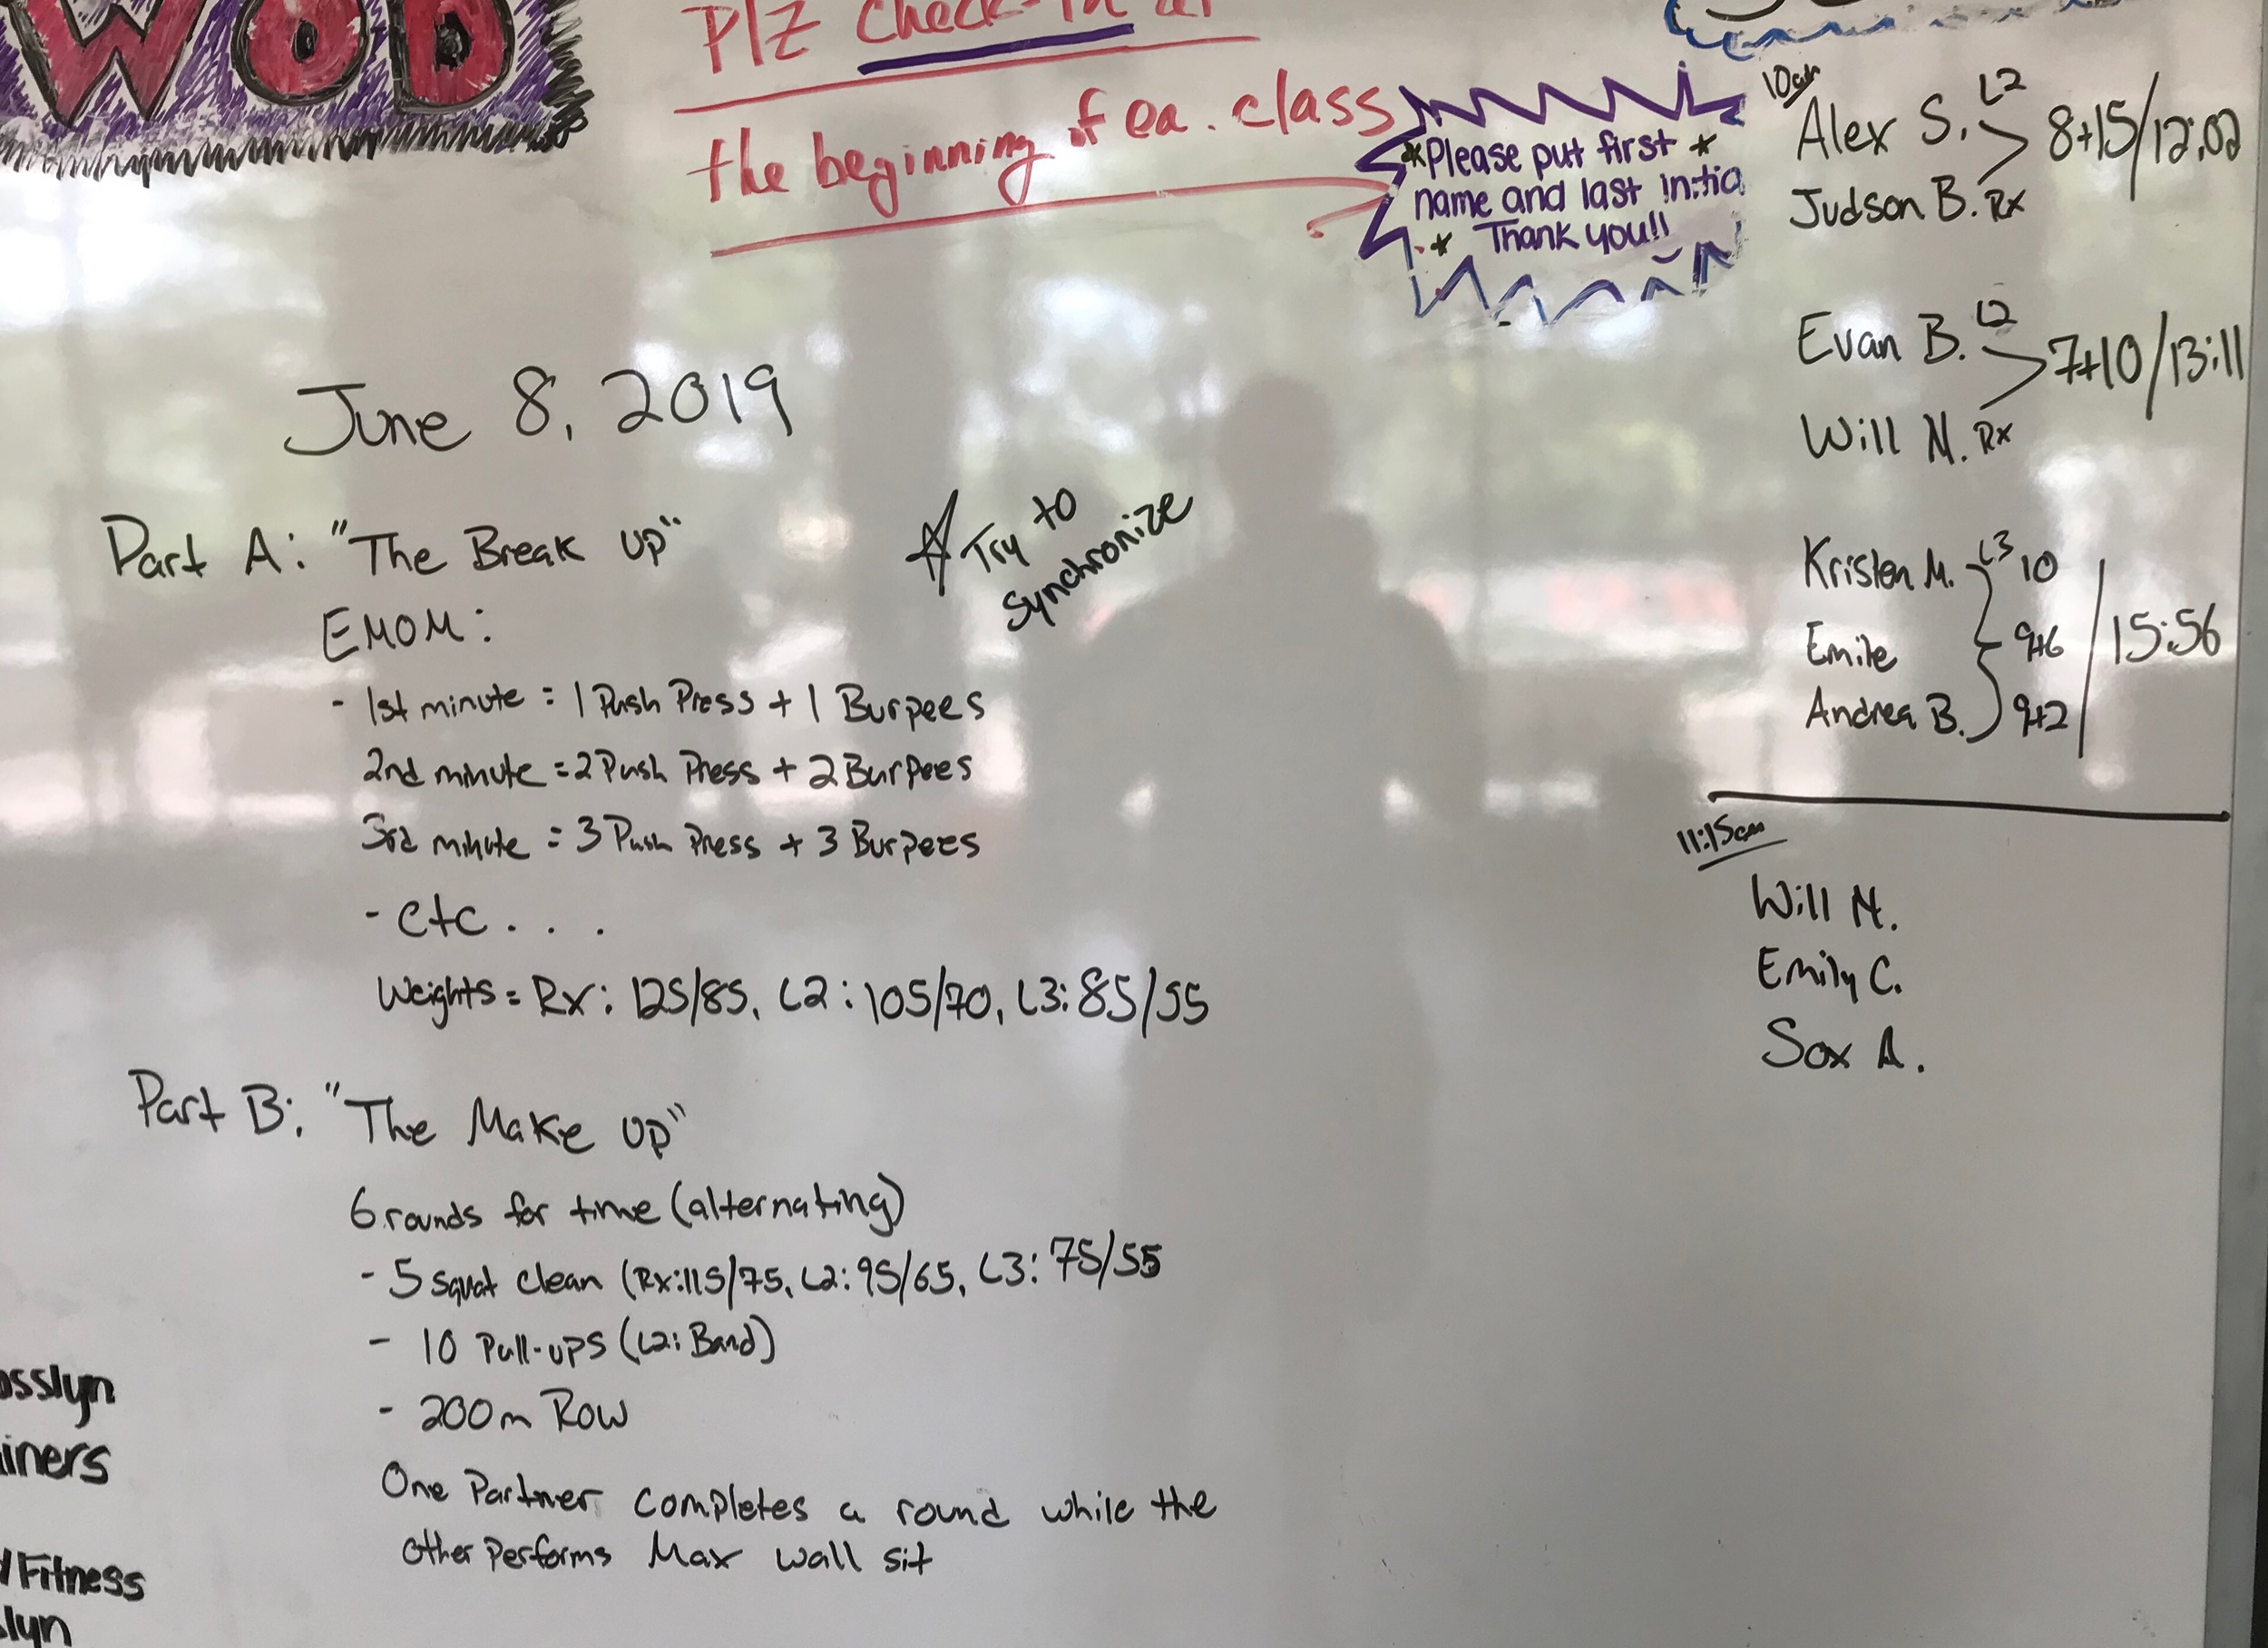 WOD
Plz Check-In at
the beginning of ea. class
*Please put first *
name and last initia
* Thank you!!
June 8, 2019
Part A: "The Break up"
Try to
synchronize
EMOM:
- 1st minute = 1 Push Press + 1 Burpees
2nd minute = 2 Push Press + 2 Burpees
3rd minute = 3 Push Press + 3 Burpees
- etc...
Weights = Rx: 125/85, L2: 105/70, L3: 85/55
Part B: "The Make up"
6 rounds for time (alternating)
- 5 squat clean (Rx: 115/75, L2: 95/65, L3: 75/55
- 10 Pull-ups (L2: Band)
- 200m Row
One Partner completes a round while the
other performs Max wall sit
osslyn
iners
Fitness
lyn
10am
Alex S. L2 8+15/12:02
Judson B. Rx
Evan B. L2 7+10/13:11
Will M. Rx
Kristen M. L3 10
Emile 9+6 /15:56
Andrea B. 9+2
11:15am
Will M.
Emily C.
Sox A.